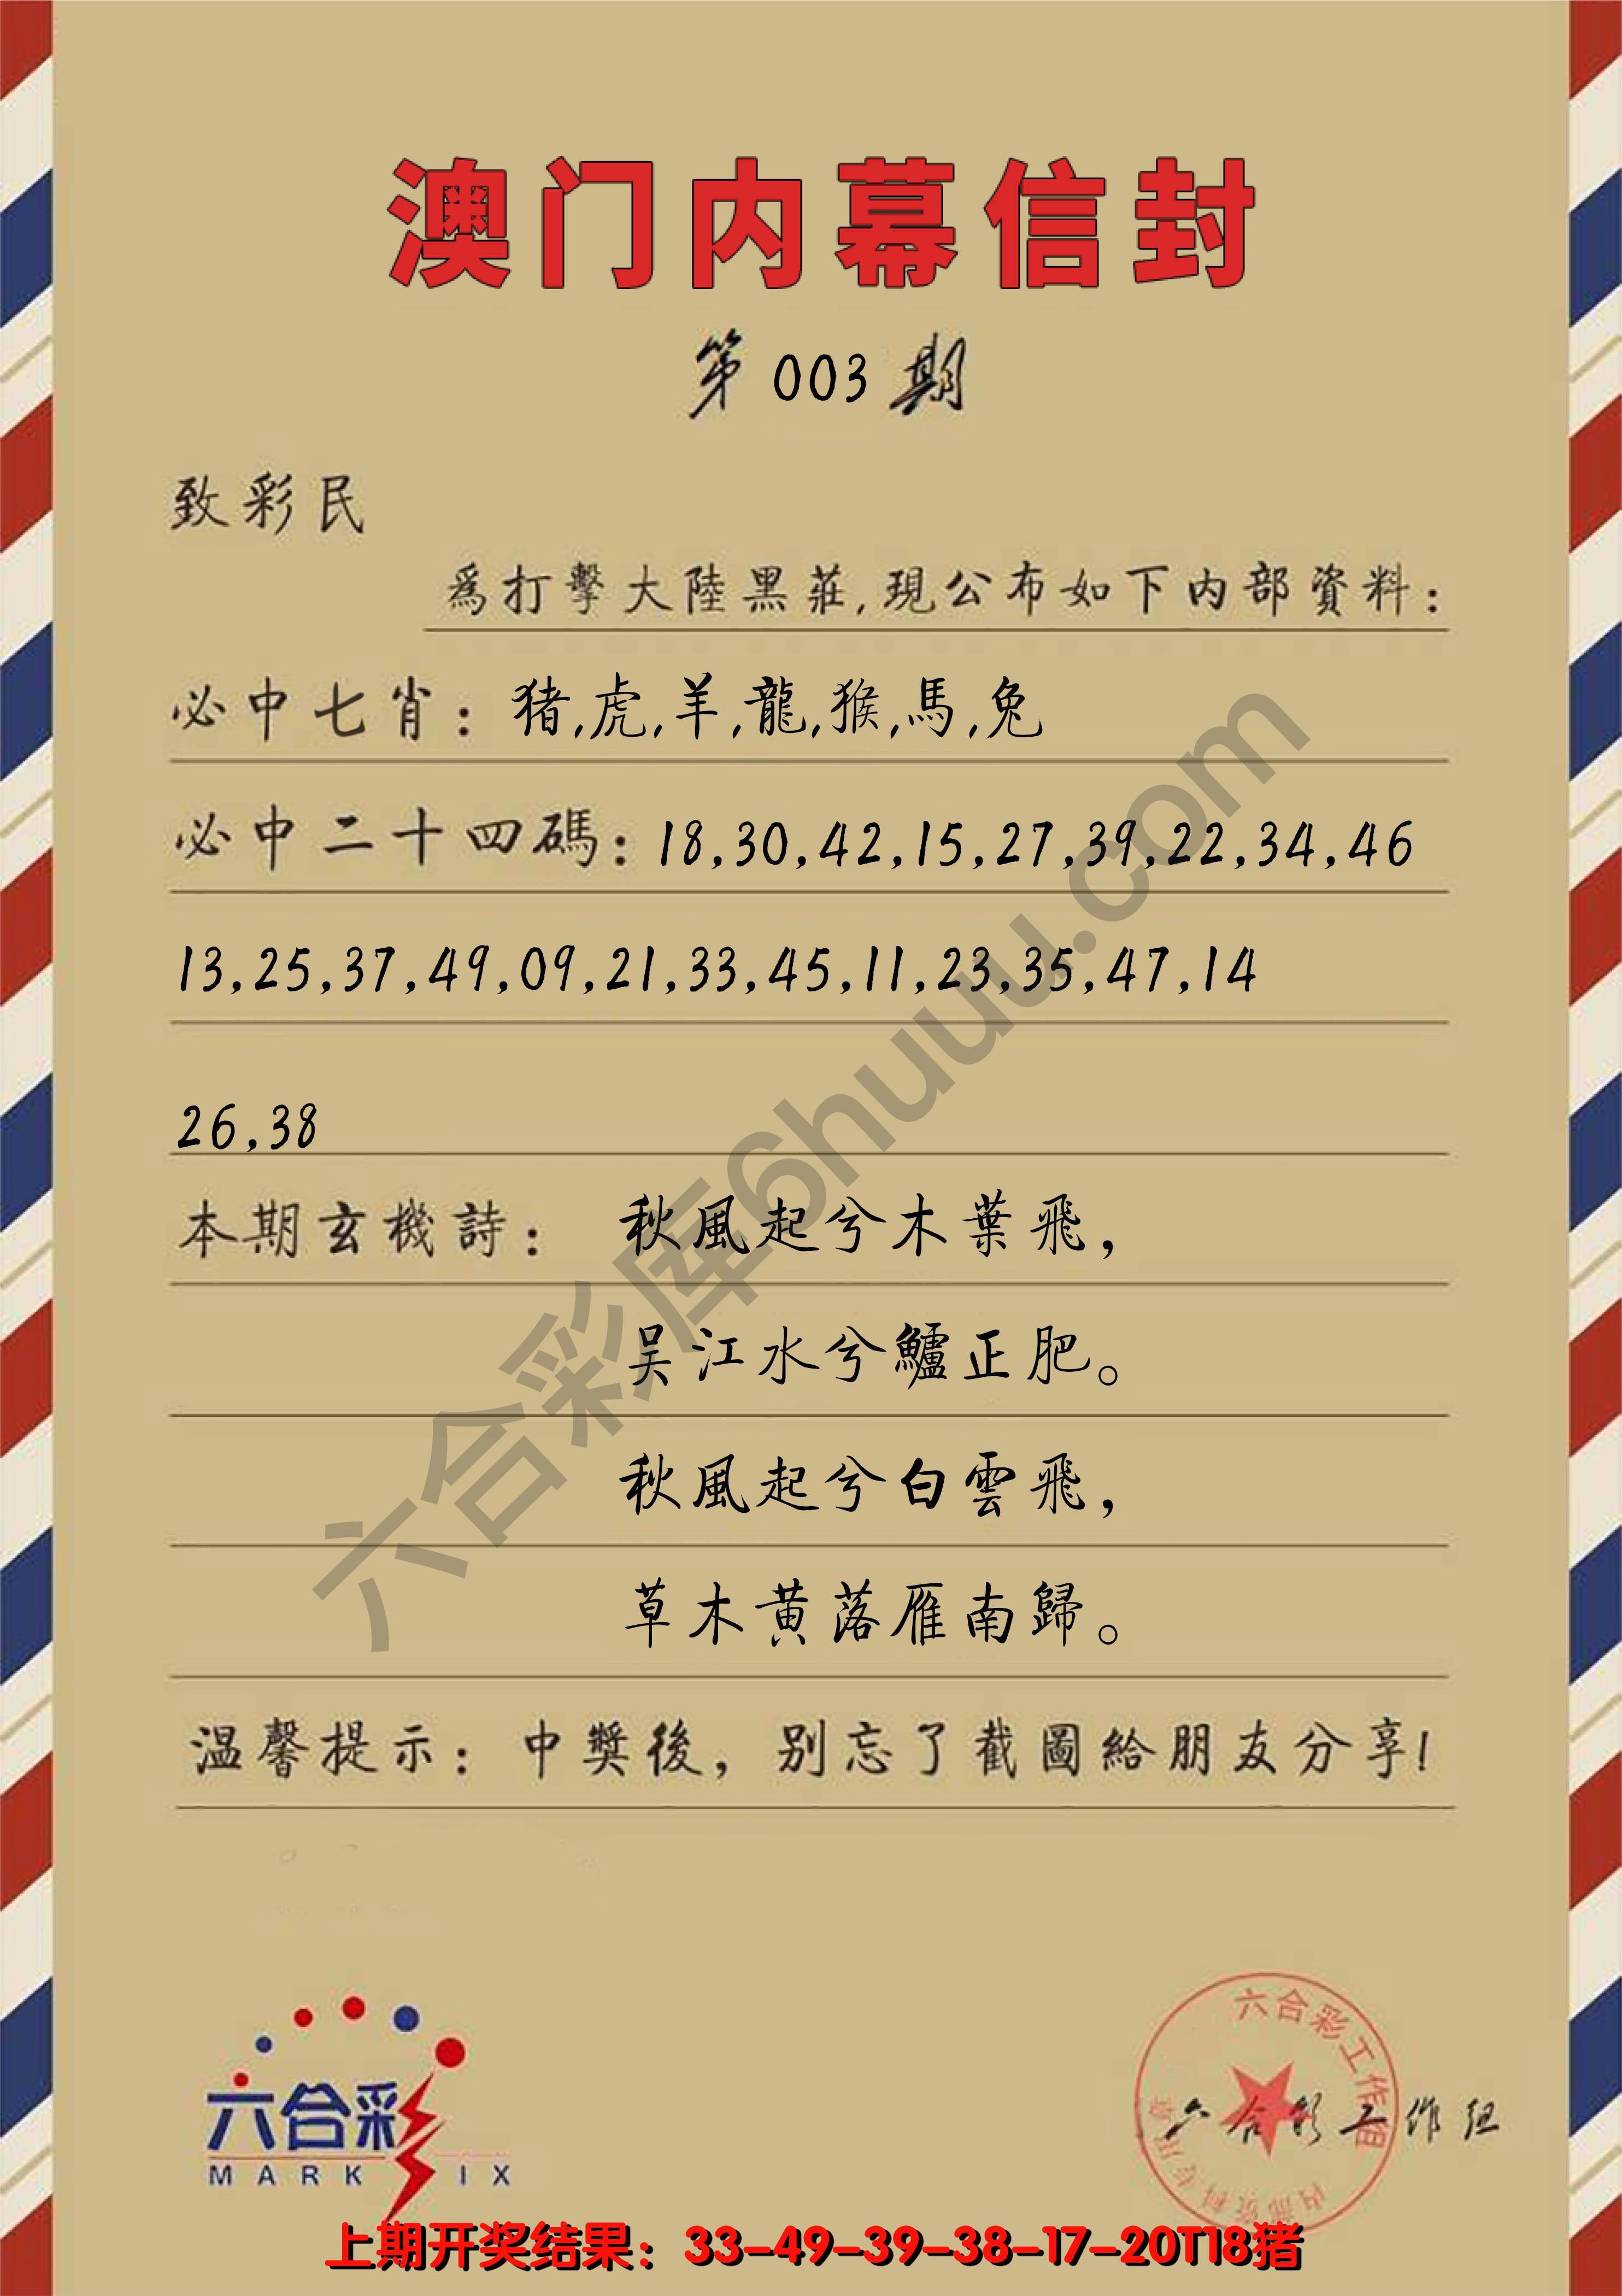 澳门内幕信封
第003期
致彩民
爲打擊大陸黑莊,現公布如下内部資料:
必中七肖: 猪,虎,羊,龍,猴,馬,兔
必中二十四碼: 18,30,42,15,27,39,22,34,46
13,25,37,49,09,21,33,45,11,23,35,47,14
26,38
本期玄機詩: 秋風起兮木葉飛,
吴江水兮鱸正肥。
秋風起兮白雲飛,
草木黄落雁南歸。
温馨提示: 中獎後, 别忘了截圖給朋友分享!
六合彩库6huuu.com
六合彩
MARK SIX
六合彩工作组
内部资料专用章
六合彩工作组
上期开奖结果: 33-49-39-38-17-20T18猪